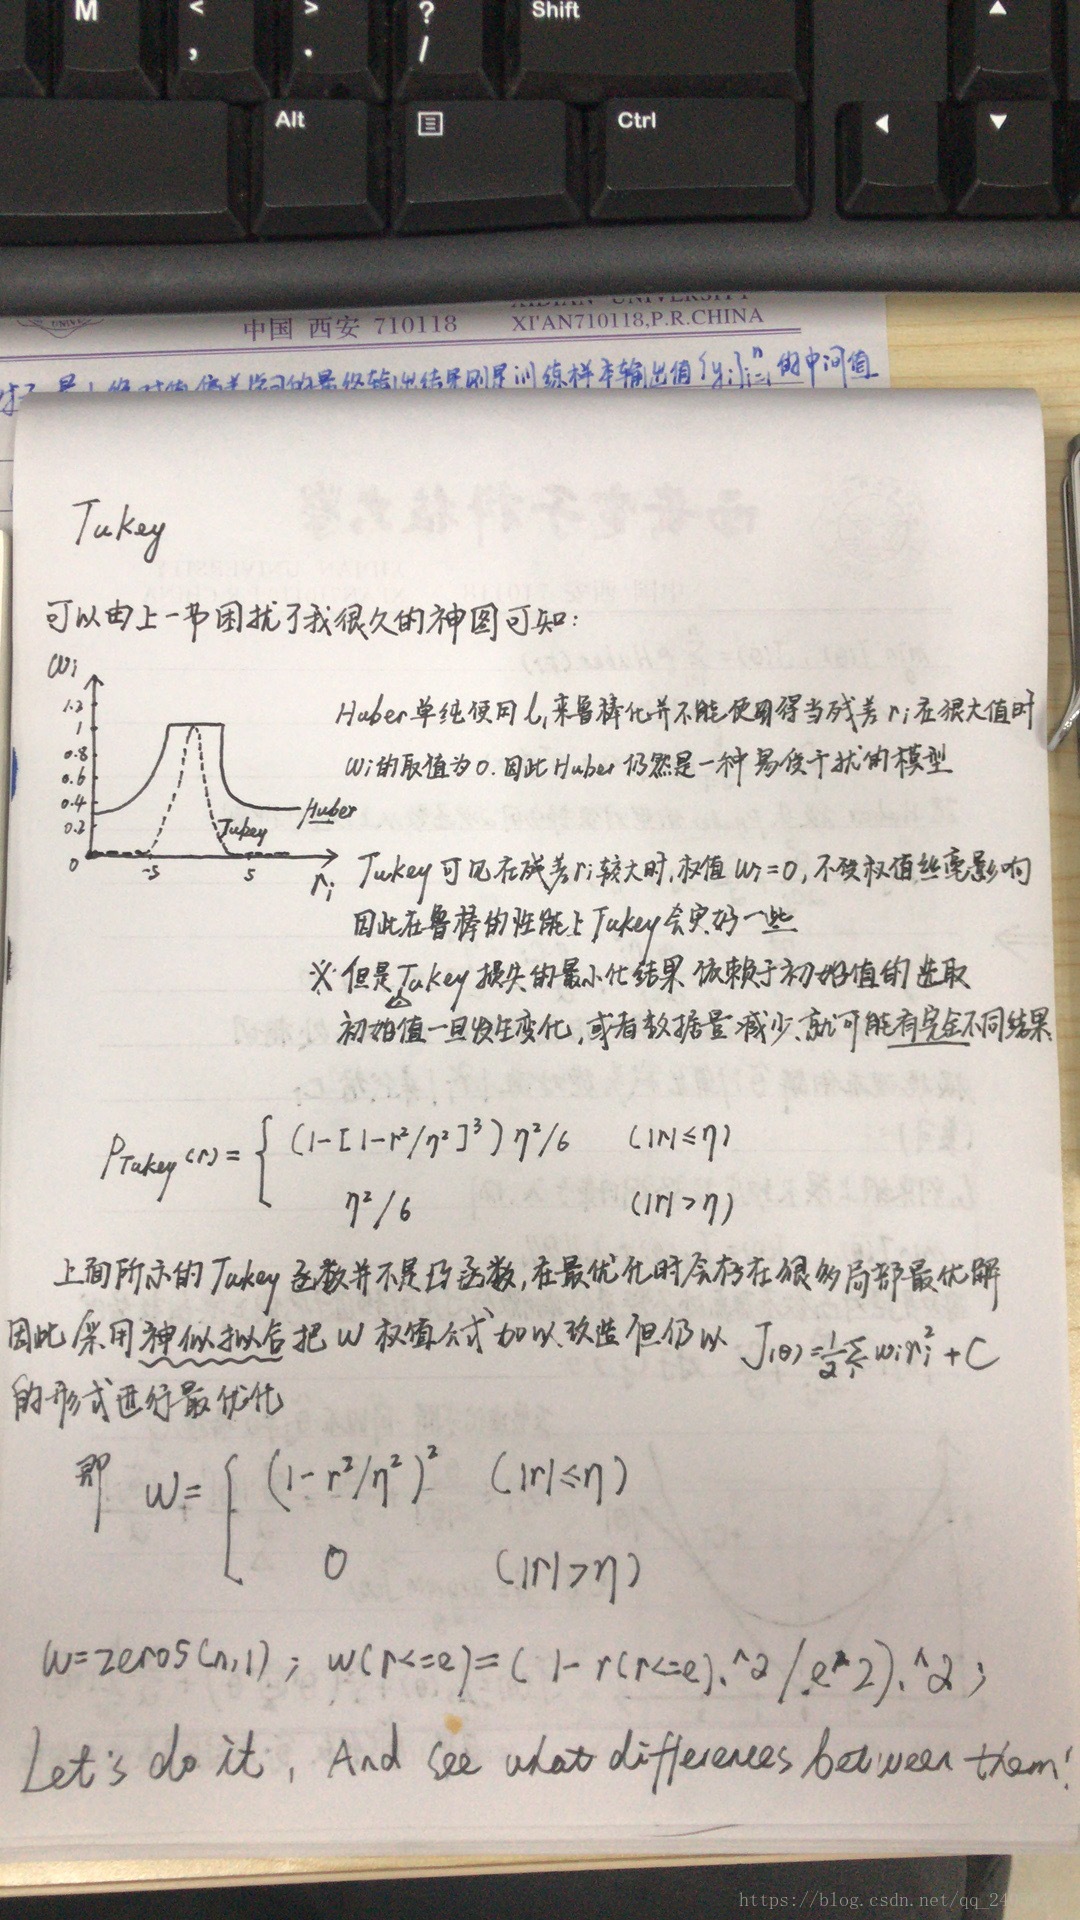 M
<
,
>
.
?
/
Shift
Alt
Ctrl
XIDIAN UNIVERSITY
中国 西安 710118
XI'AN710118,P.R.CHINA
训练样本输出值{yi}ⁿi=1的中间值
Tukey
可以由上一节困扰了我很久的神图可知:
Wi
1.2
1
0.8
0.6
0.4
0.2
0
-5
5
ri
Huber
Tukey
Huber单纯使用l₁来鲁棒化并不能使用得当残差ri在很大值时
Wi的取值为0.因此Huber仍然是一种易受干扰的模型
Tukey可见在残差ri较大时,权值Wi=0,不受权值丝毫影响
因此在鲁棒的性能上Tukey会更好一些
※但是Tukey损失的最小化结果依赖于初始值的选取
初始值一旦发生变化,或者数据量减少,就可能有完全不同结果
ρTukey(r)= { (1-[1-r²/η²]³)η²/6 (|r|≤η)
η²/6 (|r|>η)
上面所示的Tukey函数并不是凸函数,在最优化时会存在很多局部最优解
因此采用神似拟合把W权值公式加以改造但仍以 J(θ)=½Σi wi ri²+C
的形式进行最优化
即 W= { (1-r²/η²)² (|r|≤η)
0 (|r|>η)
W=zeros(n,1); w(r<=e)=(1-r(r<=e).^2/e^2).^2;
Let's do it, And see what differences between them!